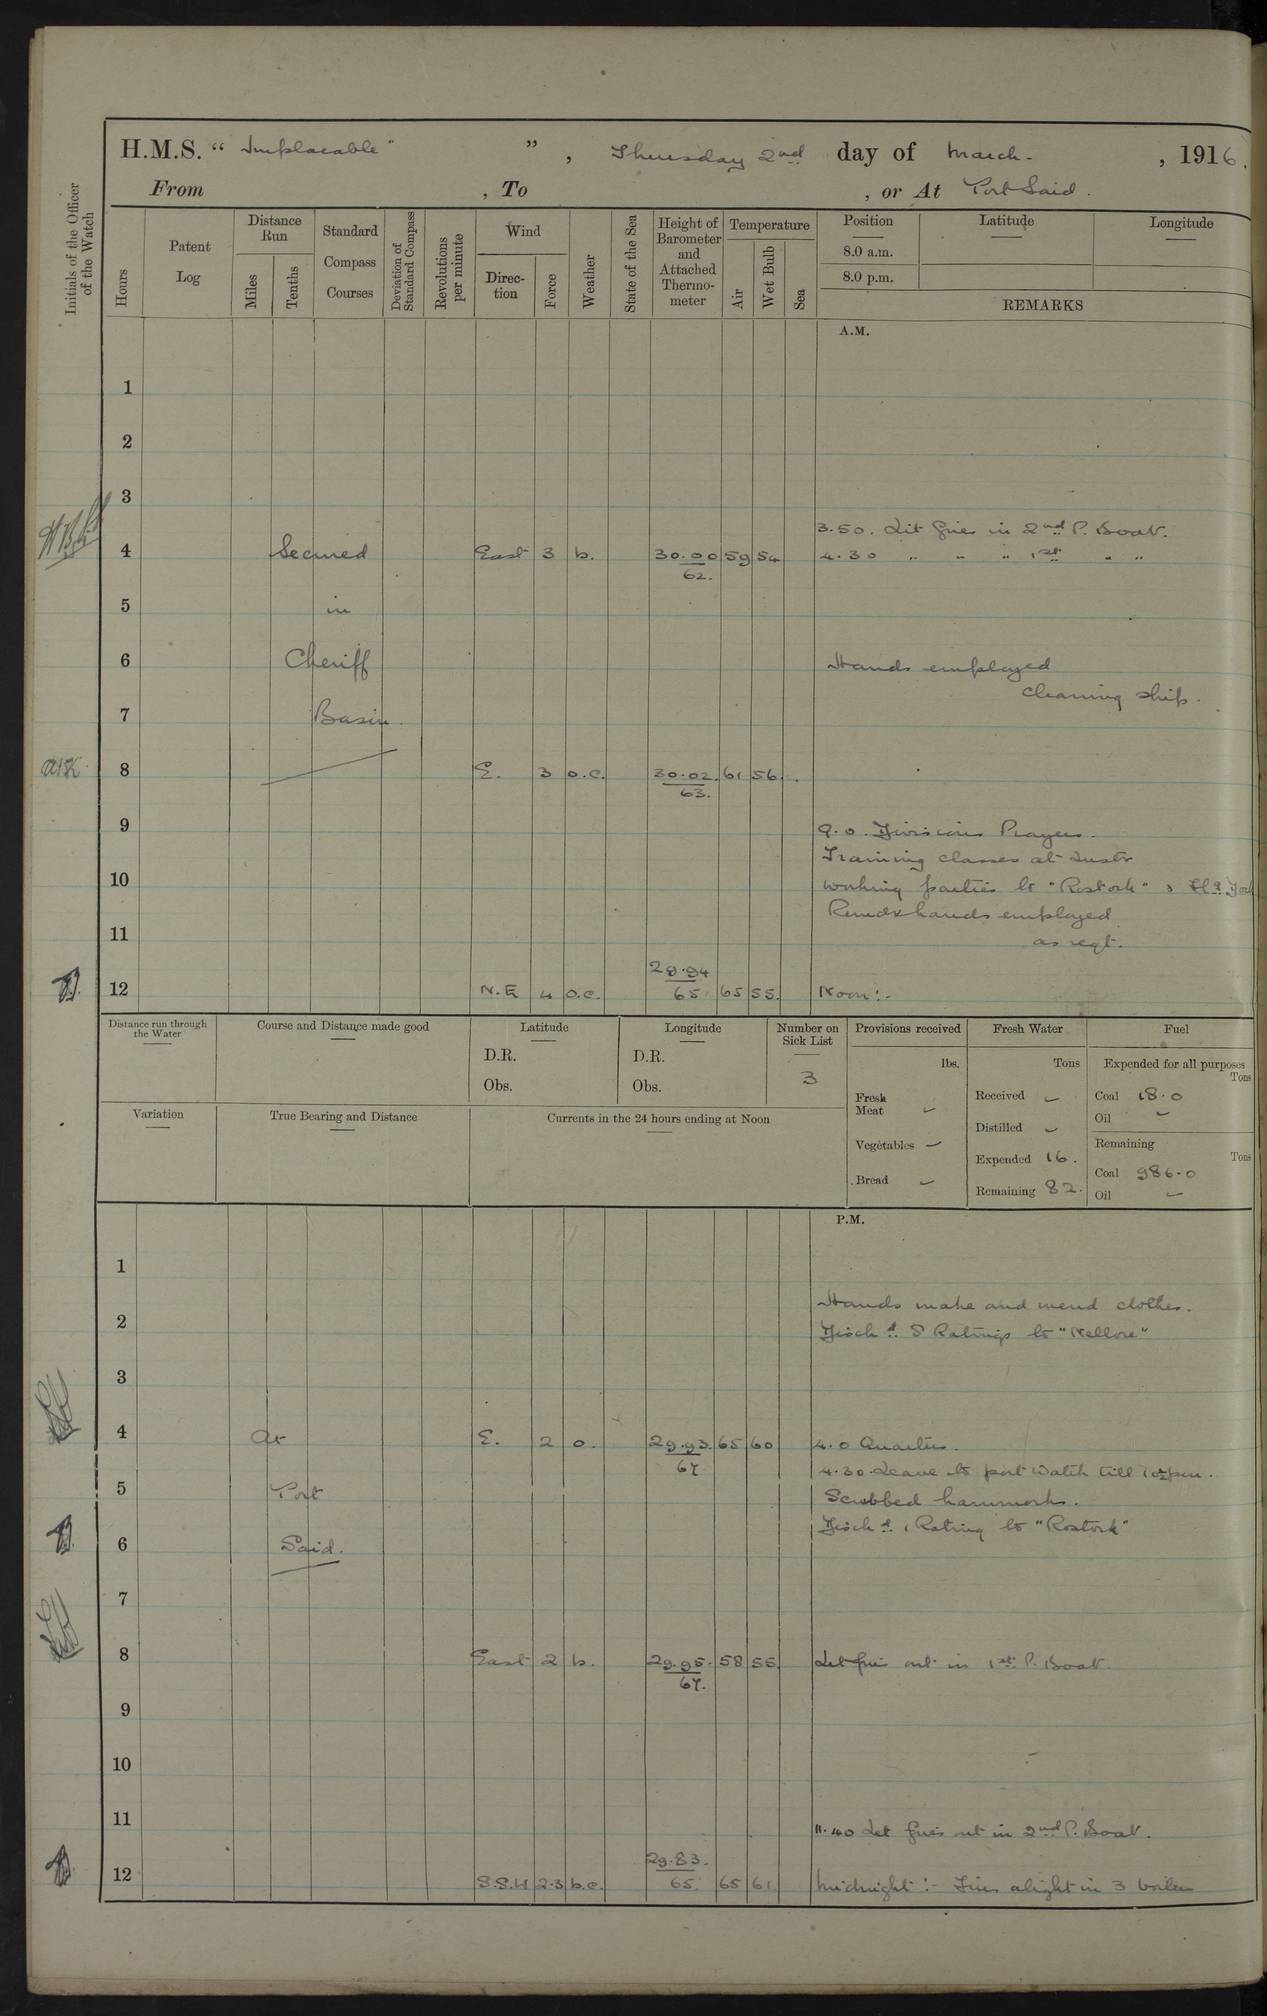 H.M.S. “ Implacable" ” , Thursday 2nd day of March. , 1916.
From , To , or At Port Said.
Initials of the Officer of the Watch
Hours
Patent Log
Distance Run
Miles
Tenths
Standard Compass Courses
Deviation of Standard Compass
Revolutions per minute
Wind
Direction
Force
Weather
State of the Sea
Height of Barometer and Attached Thermometer
Temperature
Air
Wet Bulb
Sea
Position
Latitude
Longitude
8.0 a.m.
8.0 p.m.
REMARKS
A.M.
1
2
3
3.50. Lit fires in 2nd P. Boat.
4 Secured East 3 b. 30.00 59 54 4.30 " " " 1st " "
62.
5 in
6 Cheriff Hands employed
cleaning ship.
7 Basin.
8 E. 3 o.c. 30.02. 61 56.
63.
9 9.0. Divisions Prayers.
Training classes at Instr
10 Working parties to "Rostock" &
Remdr hands employed
11 as reqt.
29.94
12 N.E 4 o.c. 65. 65 55. Noon:-
Distance run through the Water
Course and Distance made good
Latitude
D.R.
Obs.
Longitude
D.R.
Obs.
Number on Sick List
3
Provisions received
lbs.
Fresh Meat –
Vegetables –
Bread –
Fresh Water
Tons
Received –
Distilled –
Expended 16.
Remaining 82.
Fuel
Expended for all purposes
Tons
Coal 18.0
Oil –
Remaining
Tons
Coal 986.0
Oil –
Variation
True Bearing and Distance
Currents in the 24 hours ending at Noon
P.M.
1
Hands make and mend clothes.
2 Disch d. 8 Ratings to "Nellore"
3
4 At E. 2 o. 29.93. 65 60 4.0 Quarters.
67
4.30. Leave to port Watch till 10 pm.
5 Port Scrubbed hammocks.
Disch d. 1 Rating to "Rostock"
6 Said.
7
8 East 2 b. 29.95. 58 55 Let fires out in 1st P. Boat.
67.
9
10
11
11.40 Let fires out in 2nd P. Boat.
29.83.
12 S.S.W 2.3 b.c. 65. 65 61. Midnight:- Fires alight in 3 boilers